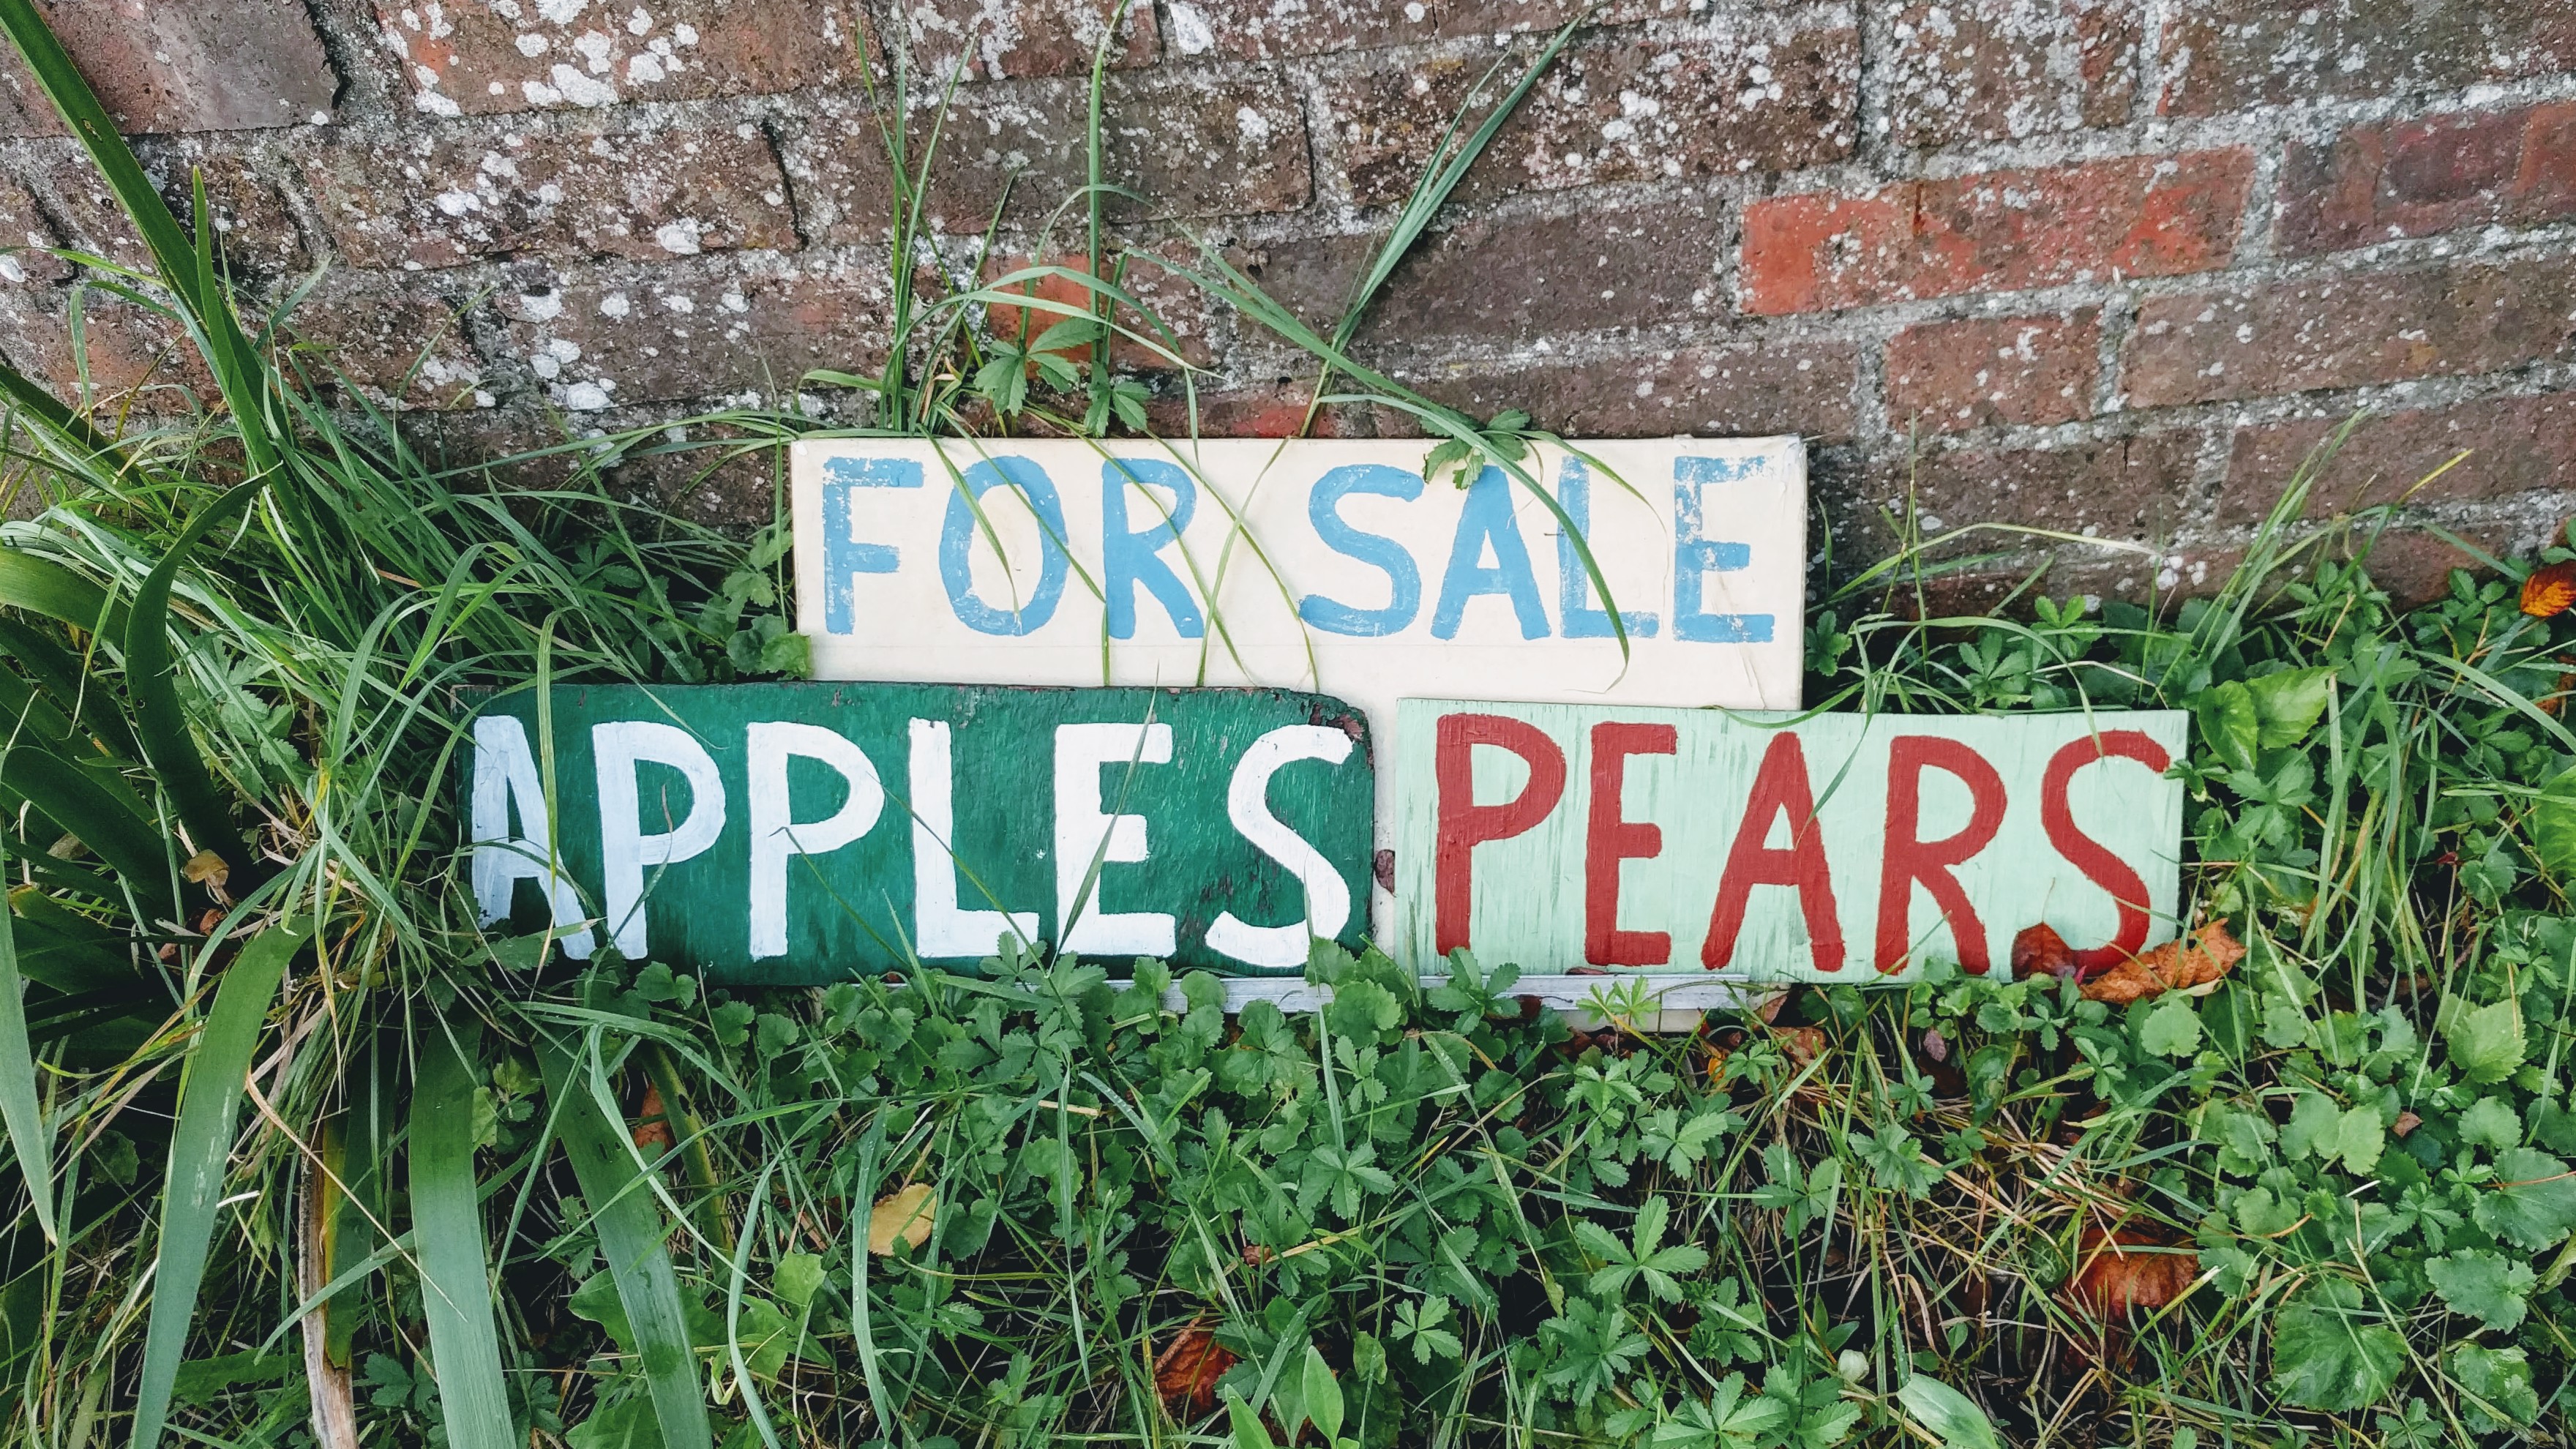 FOR SALE
APPLES PEARS